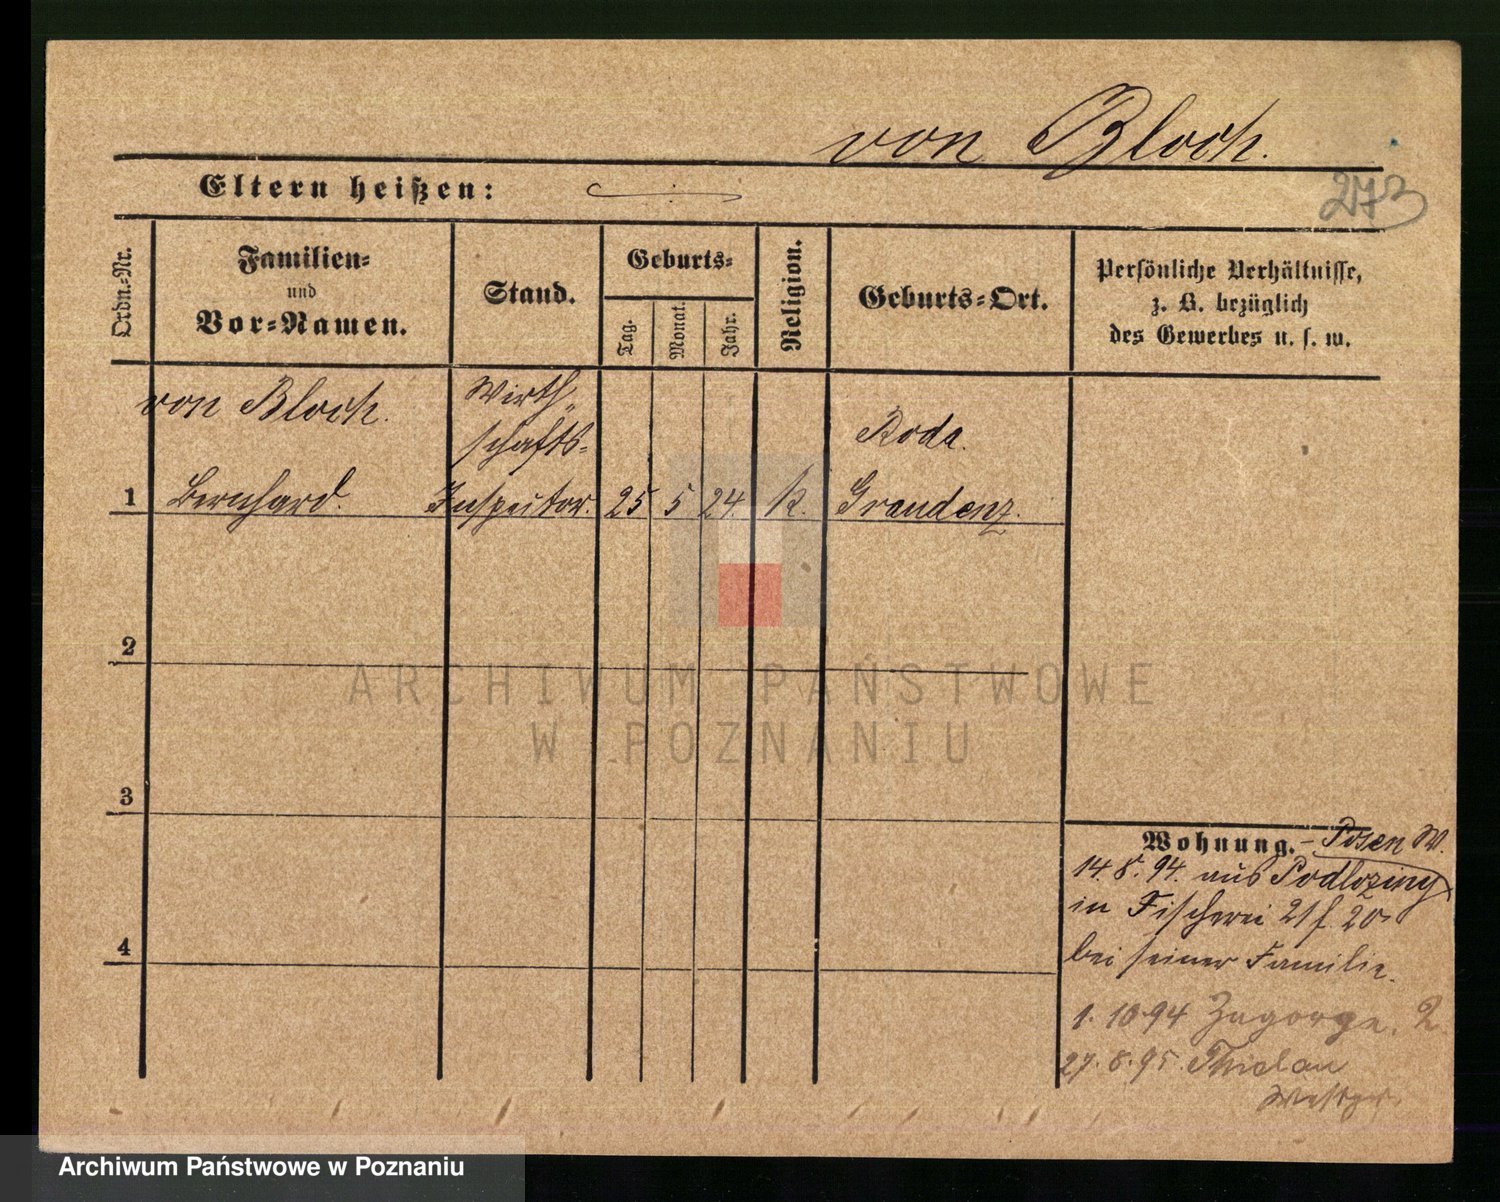 von Bloch.
273
Eltern heißen:
Ordn.-Nr.
Familien-
und
Vor-Namen.
Stand.
Geburts-
Tag.
Monat.
Jahr.
Religion.
Geburts-Ort.
Persönliche Verhältnisse,
z. B. bezüglich
des Gewerbes u. s. w.
von Bloch.
Wirth
schafts-
Roda.
1 Bernhard. Inspektor. 25 5 24. K. Graudenz.
2
ARCHIWUM PAŃSTWOWE
W POZNANIU
3
Wohnung. - Posen W.
14. 8. 94. aus
in Fischerei 21 f. 20
4
bei seiner Familie.
1. 10 94 Zagorze. 2
27. 8. 95.
Westpr.
Archiwum Państwowe w Poznaniu